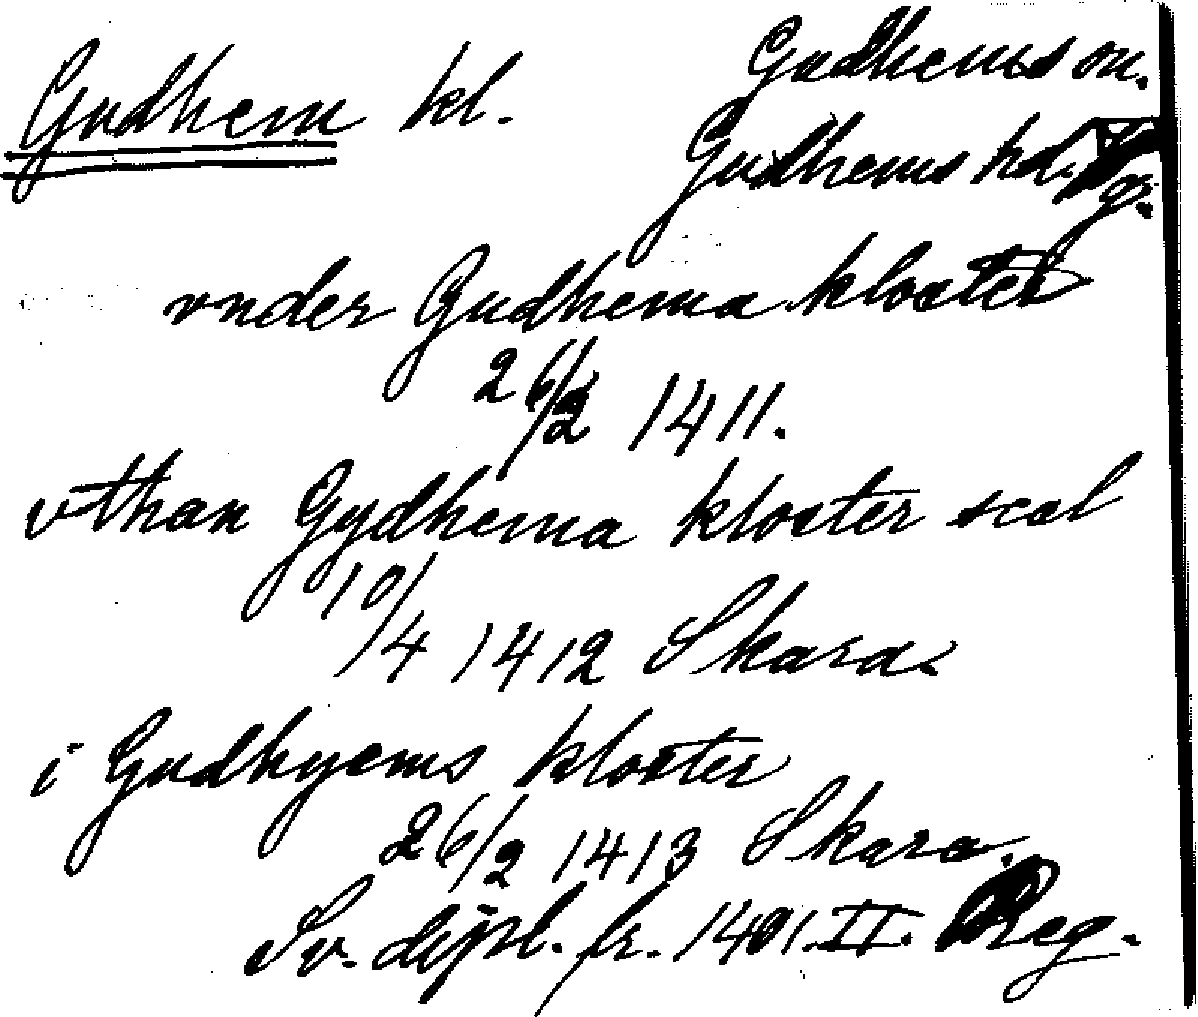 Gudhem kl.
Gudhems sn.
Gudhems hd. Vg.
vnder Gudhema kloster
26/2 1411.
vthan Gydhema kloster scal
10/4 1412 Skara.
i Gudhyems kloster
26/2 1413 Skara.
Sv. dipl. fr. 1401. II. Reg.